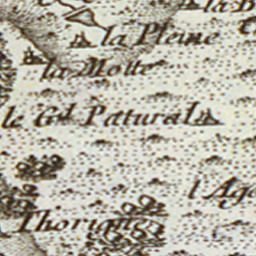 la B
la Pleine
la Motte
le Gd. Patural
l'Age
Thorigny